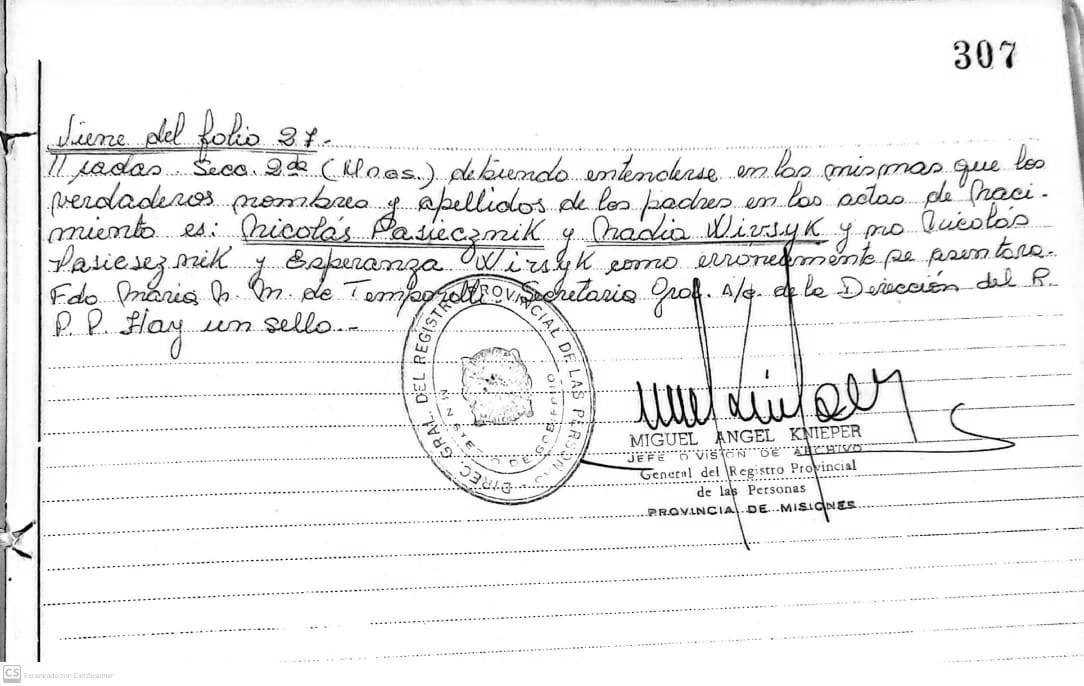 307
Viene del folio 27.-
// radas. Secc. 2da (Mnes.) debiendo entenderse en las mismas que los
verdaderos nombres y apellidos de los padres en las actas de Naci-
miento es: Nicolás Pasiecznik y Nadia Wirsyk y no Nicolas
Pasieseznik y Esperanza Wirsyk como erróneamente se asentara.
Fdo Maria N. M. de Secretaria Gral. A/c. de la Dirección del R.
P. P. Hay un sello.-
DIREC. GRAL. DEL REGISTRO PROVINCIAL DE LAS PERSONAS
MINISTERIO DE GOBIERNO
MIGUEL ANGEL KNIEPER
JEFE DIVISION DE ARCHIVO
General del Registro Provincial
de las Personas
PROVINCIA DE MISIONES
CS Escaneado con CamScanner